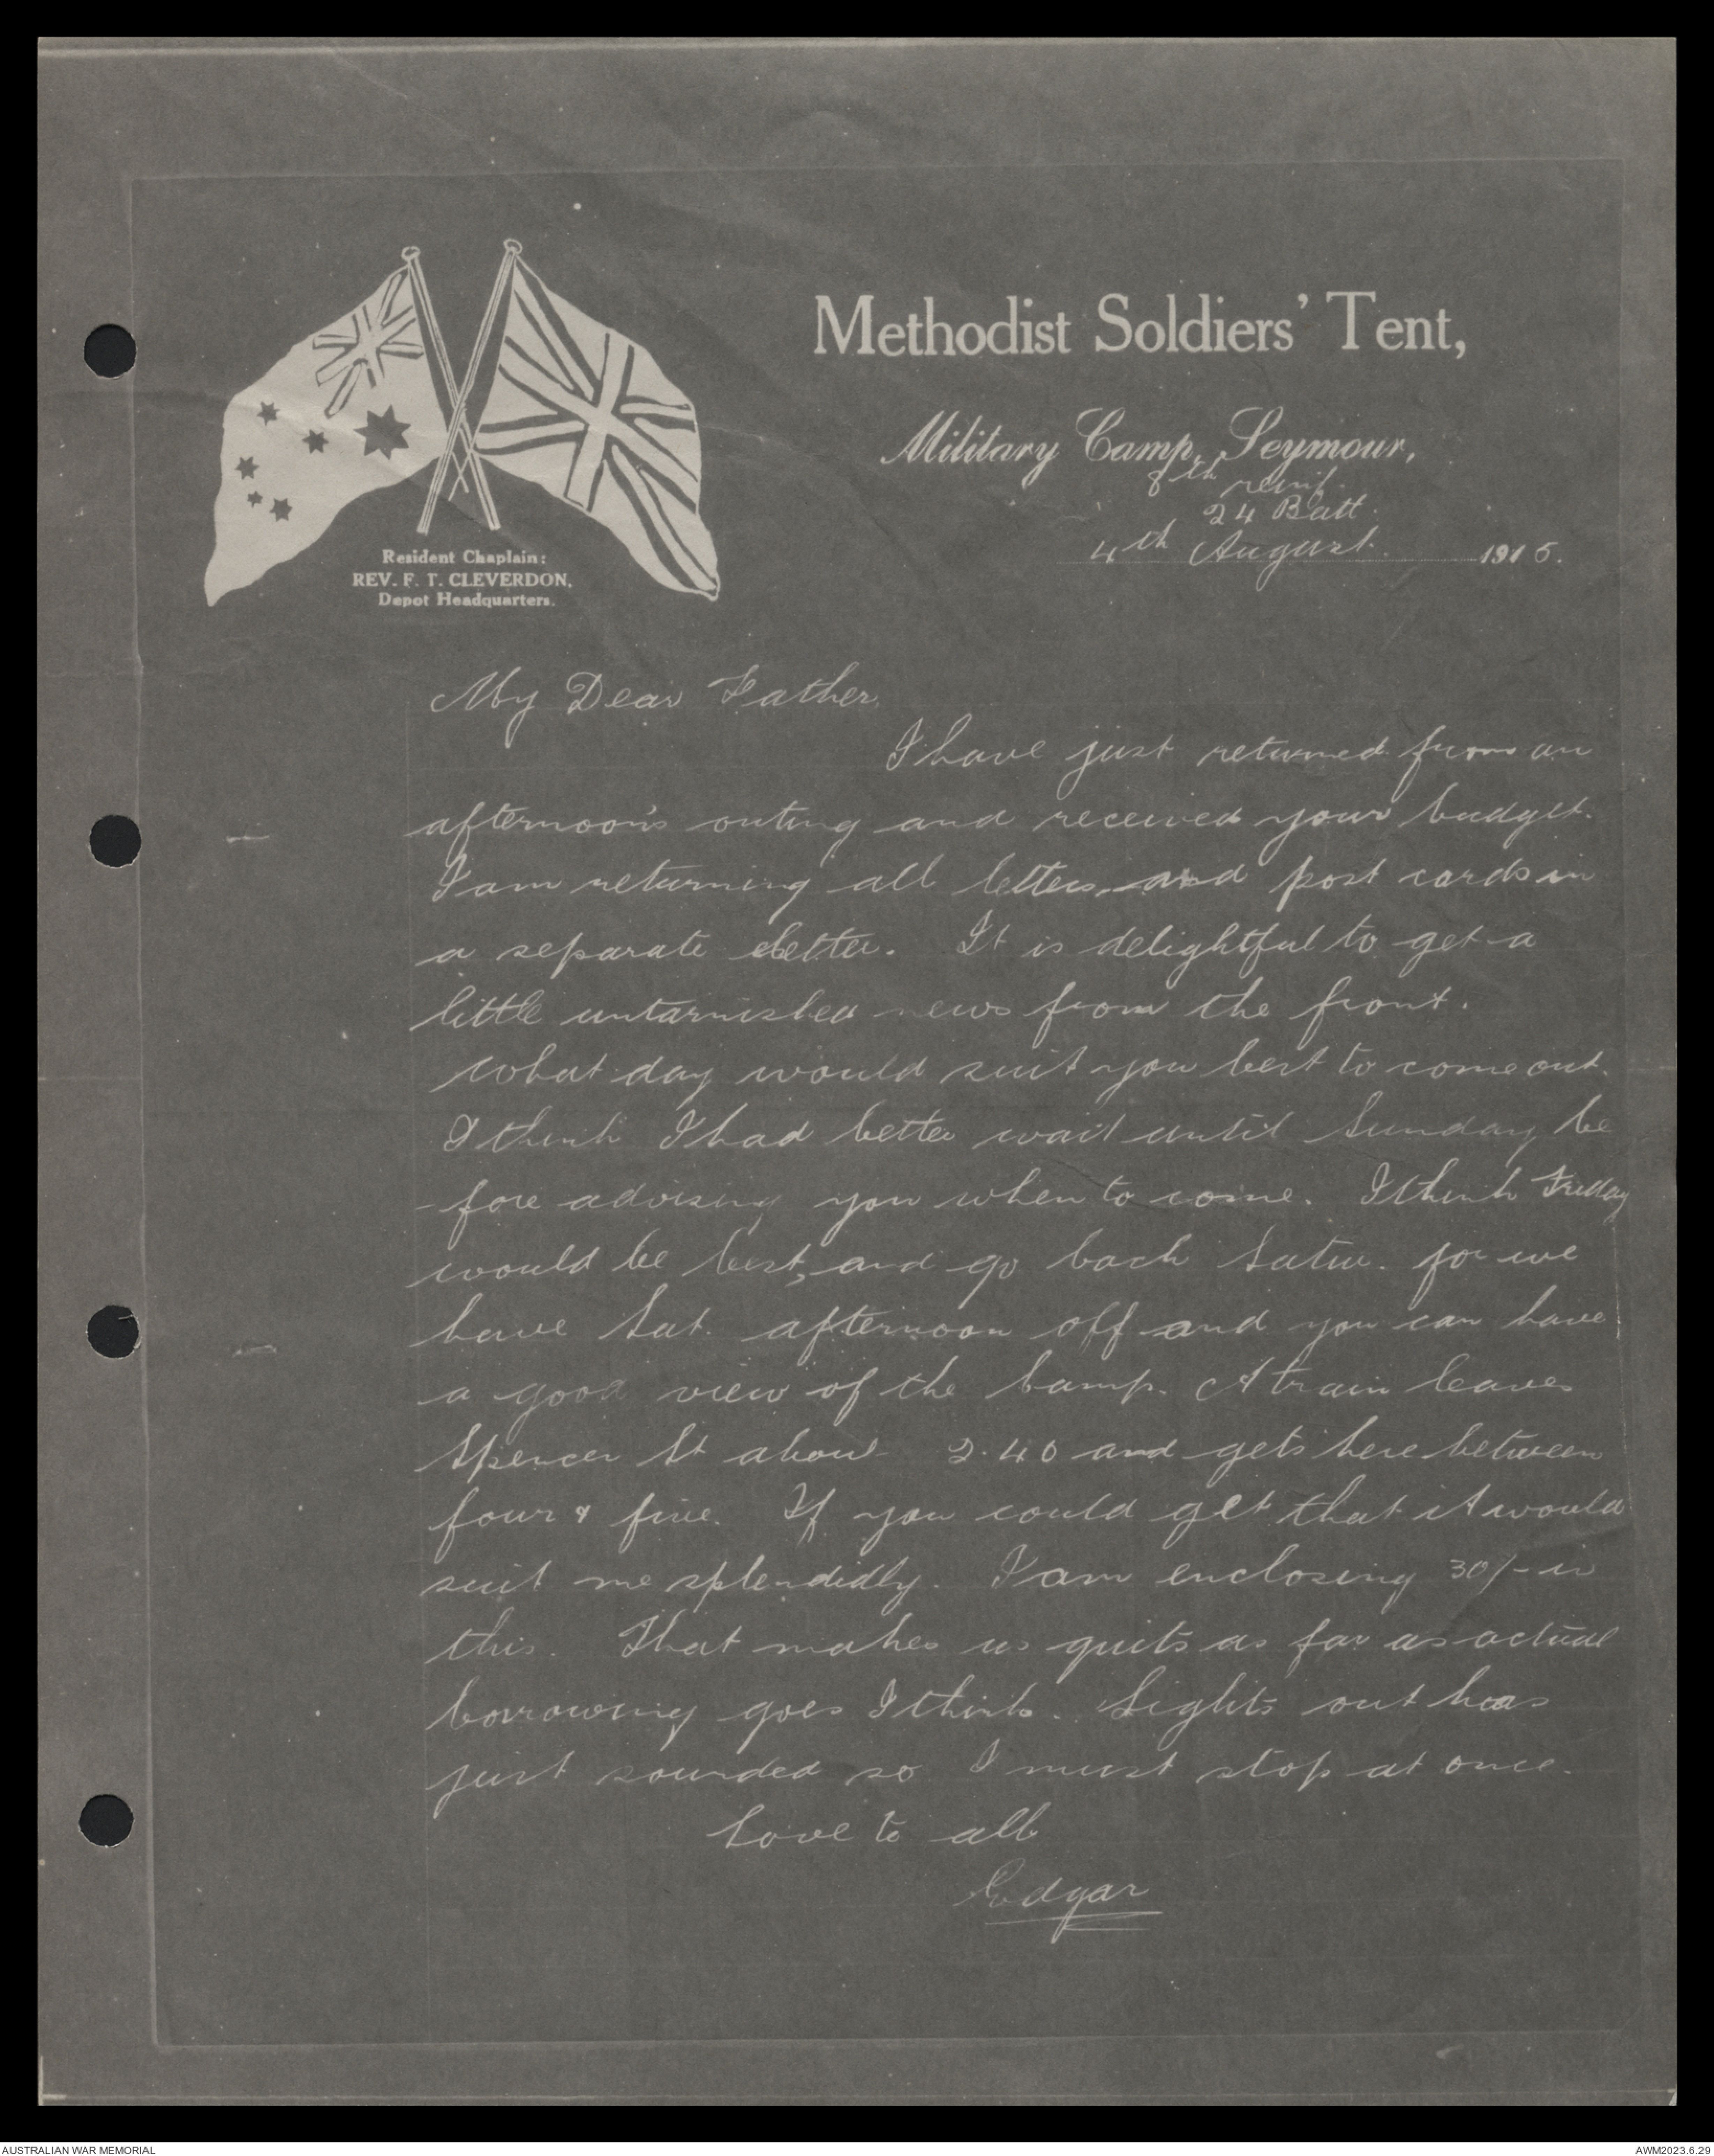 Methodist Soldiers' Tent,
Military Camp, Seymour,
8th reinf.
24 Batt.
4th August. 1915.
Resident Chaplain:
REV. F. T. CLEVERDON,
Depot Headquarters.
My Dear Father,
I have just returned from an
afternoon's outing and received your budget.
I am returning all letters, and post cards in
a separate letter. It is delightful to get a
little untarnished news from the front.
What day would suit you best to come out.
I think I had better wait until Sunday be
-fore advising you when to come. I think Friday
would be best, and go back Satur. for we
have Sat. afternoon off and you can have
a good view of the camp. A train leaves
Spencer St about 2.40 and gets here between
four & five. If you could get that it would
suit me splendidly. I am enclosing 30/- in
this. That makes us quits as far as actual
borrowing goes I think. Lights out has
just sounded so I must stop at once.
Love to all
Edgar
AUSTRALIAN WAR MEMORIAL
AWM2023.6.29